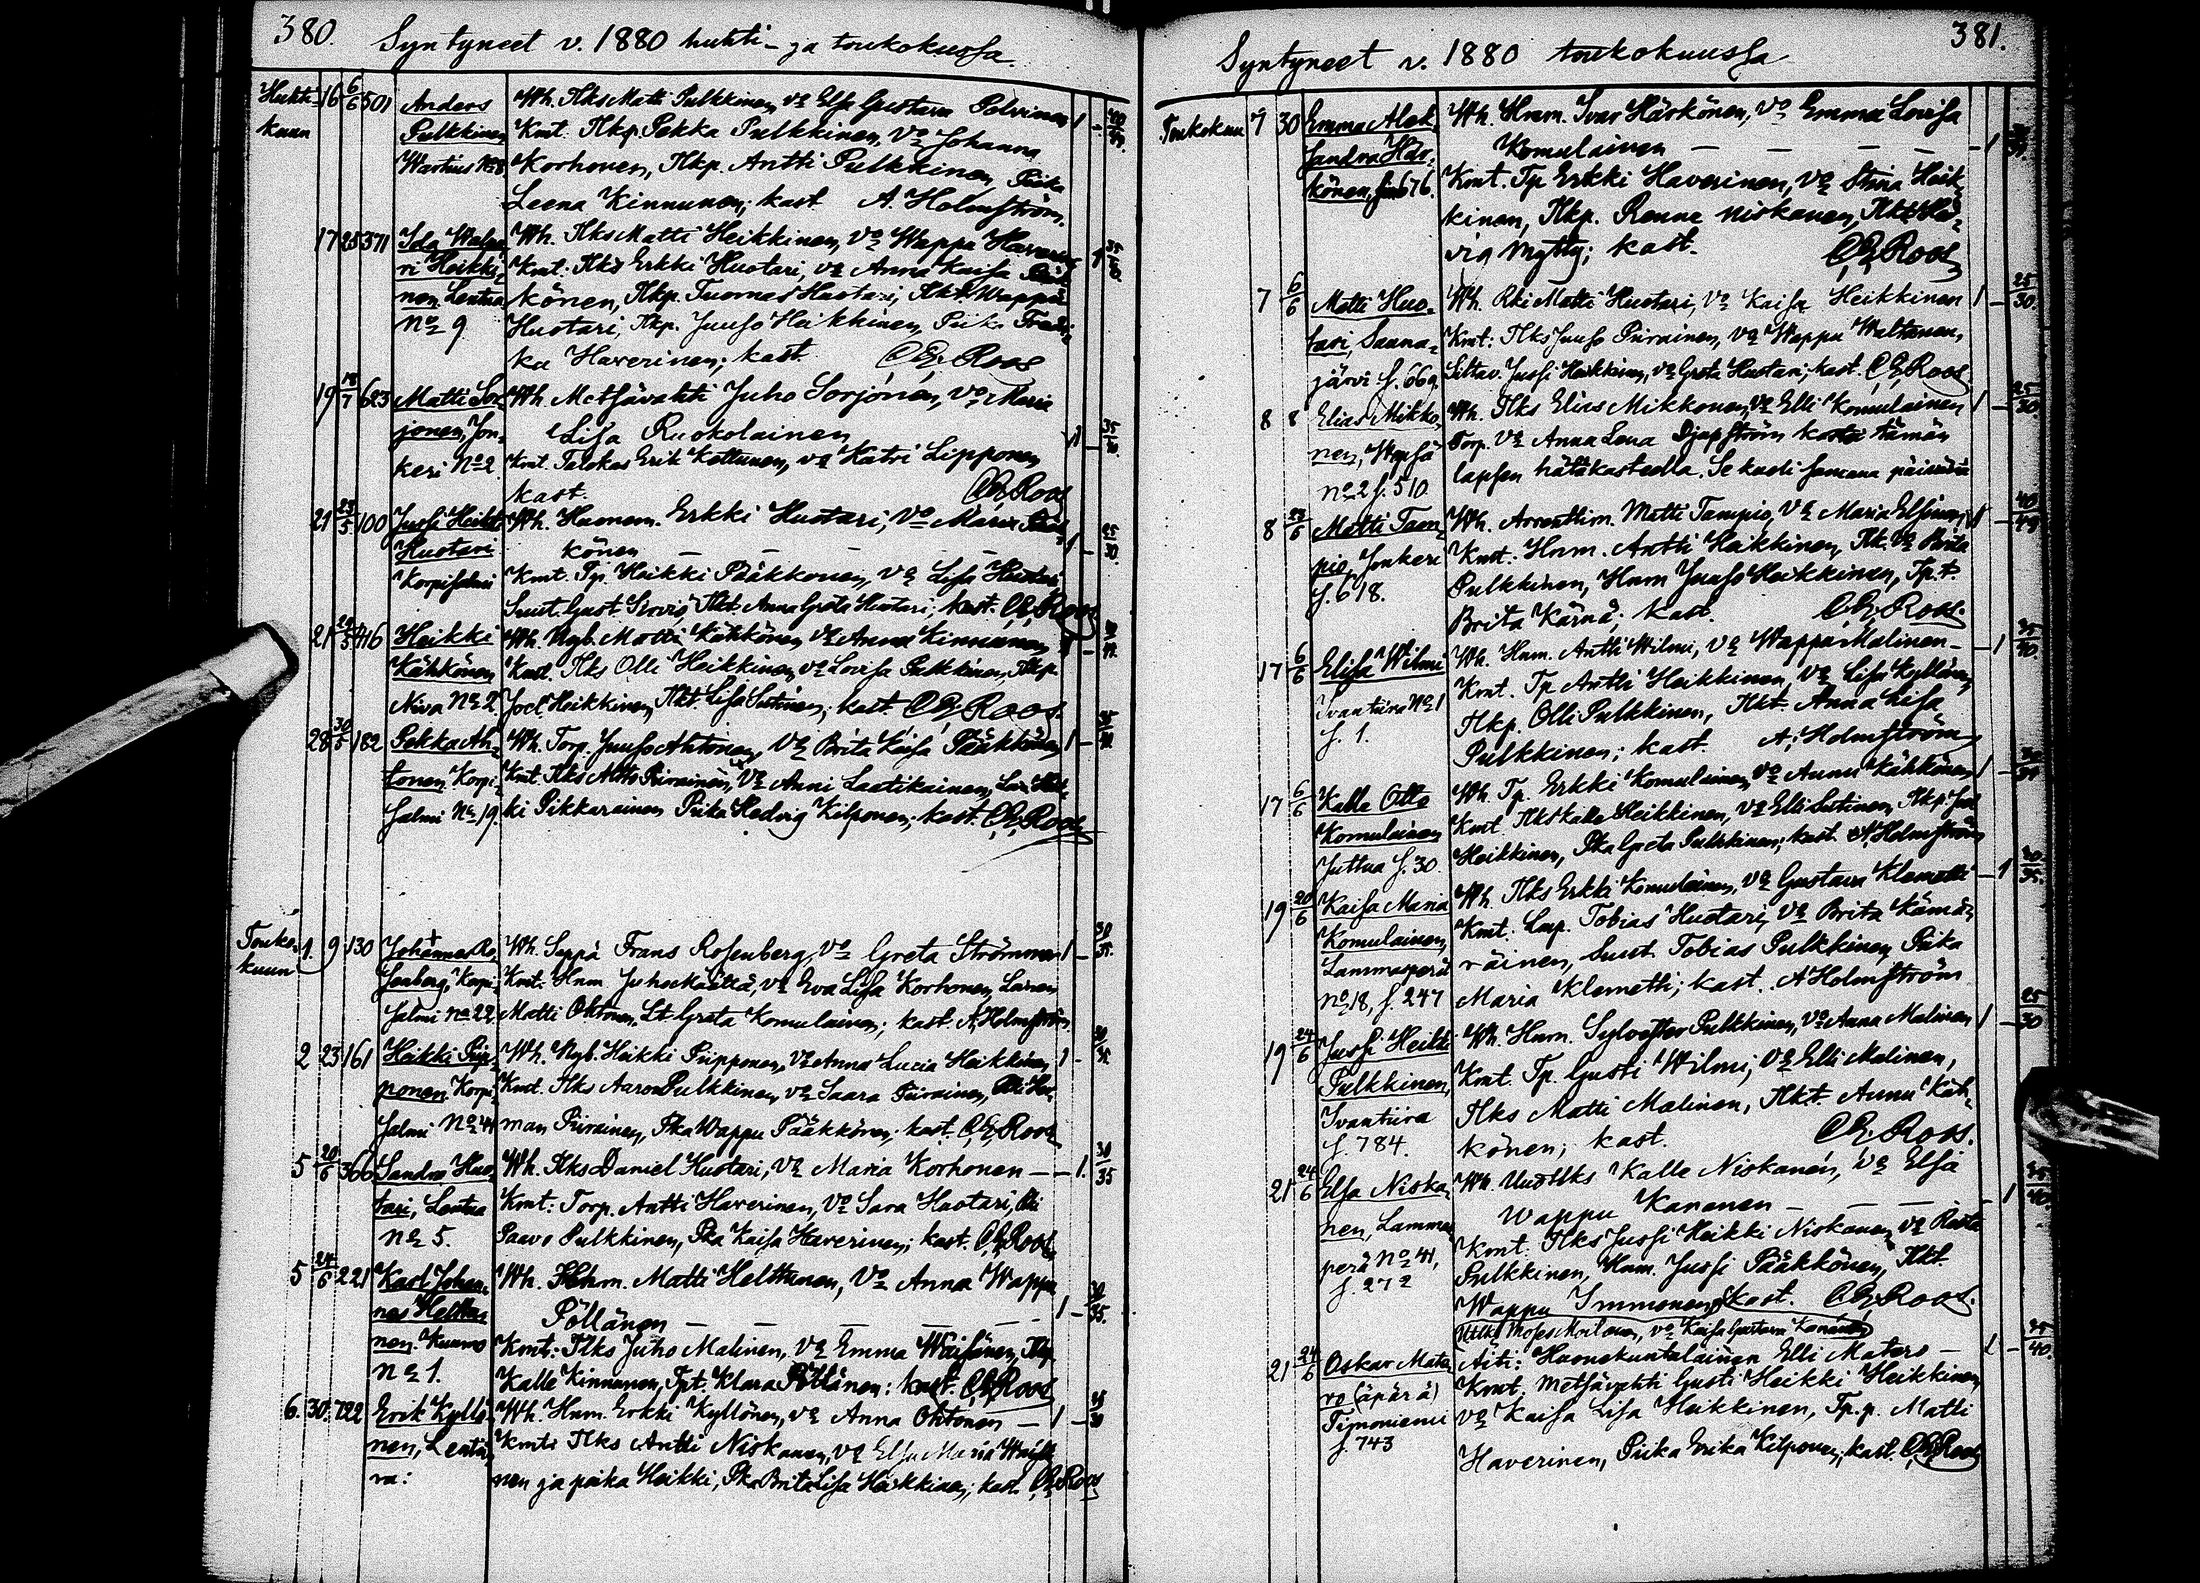 380.
Syntyneet v. 1880 huhti- ja toukokuussa.
Huhti-
kuun
16 6/6 501 Anders
Pulkkinen
Wartius No 8
Wh. Tlks Matti Pulkkinen, vo Elsa Gustava Polvinen 1 -
Kmt. Tlkp. Pekka Pulkkinen, Vo Johanna
Korhonen, Tlkp. Antti Pulkkinen, Piika
Leena Kinnunen; kast. A. Holmström.
17 25 371 Ida
ri Heikki-
nen Lentua
No 9
Wh. Tlks Matti Heikkinen, Vo Wappu
Kmt. Tlks Erkki Huotari, vo Anna Kaisa
könen, Tlkp. Tuomas Huotari, Tlkt. Wappu
Huotari, Tlkp. Juuso Heikkinen, Piika Fredri-
ka Haverinen; kast. Roos
19 18/7 623 Matti Sor-
jonen, Jon-
keri No 2
Wh. Metsävahti Juho Sorjonen, Vo Maria
Lisa Ruokolainen 1 - 35/40.
Kmt. Talokas Erik Kettunen, vo Katri Lipponen
kast. Roos
21 23/5 100 Jussi Heikki
Huotari
Korpisalmi
Wh. Huonem. Erkki Huotari, Vo Maria
könen — — — — 1 - 25/30.
Kmt. Tp. Heikki Pääkkönen, vo Lisa Huotari
Suut. Gust. Tlkt. Anna Greta Huotari; kast. Roos
21 416 Heikki
Kähkönen
Niva No 2
Wh. Nyb. Matti Kähkönen, vo Anna Kinnunen
Kmt. Tlks Olli Heikkinen, vo Lovisa Pulkkinen, Tlkp.
Joel Heikkinen, Tlkt. Lisa Sutinen; kast. Roos.
28 30/5 182 Pekka Ah-
tonen Korpi-
salmi No 19.
Wh. Torp. Juuso Ahtonen, Vo Brita Kaisa Pääkkönen 1 -
Kmt. Tlks Piirainen, Vo Anni Laatikainen,
ki Pikkarainen Piika Hedvig Kilponen; kast. Roos
Touko-
kuun
1. 9 130 Johanna Ro-
senberg, Korpi-
salmi No 22
Wh. Seppä Frans Rosenberg, Vo Greta Strömmer 1 - 30/35.
Kmt. Hnm Juho Määttä, vo Eva Lisa Korhonen,
Matti Ohtonen, Lt. Greta Komulainen; kast. A. Holmström
2 23 161 Heikki Piip-
ponen Korpi-
salmi No 44
Wh. Nyb. Heikki Piipponen, Vo Anna Lucia Heikkinen 1 - 30/35.
Kmt. Tlks Aaron Pulkkinen, vo Saara Piirainen,
man Piirainen, Pka Wappu Pääkkönen; kast. Roos
5 20/6 366 Sandra Huo-
tari, Lentua
No 5.
Wh. Tlks Daniel Huotari, Vo Maria Korhonen — - 1. 30/35
Kmt: Torp. Antti Haverinen, Vo Sara Huotari,
Paavo Pulkkinen, Pka Kaisa Haverinen; kast. Roos
5 24/6 221 Karl Johan-
nes Heltu-
nen. Kuumo
No 1.
Wh. Matti Helttunen, Vo Anna Wappu
Pöllänen — — — — — 1 - 30/35.
Kmt: Tlks Juho Malinen, Vo Emma Wäisänen, Tlkp
Kalle Kinnunen, Tpt. Klara Pöllänen: kast. Roos
6. 30. 722 Erik Kyllö-
nen, Lentii-
ra:
Wh. Hnm. Erkki Kyllönen, vo Anna Ohtonen — 1 -
Kmt: Tlks Antti Niskanen, vo Elsa Maria
nen ja poika Heikki, Pka Brita Lisa Heikkinen; kast. Roos
381.
Syntyneet v. 1880 toukokuussa
Toukokuu 7 30 Emma Alek-
sandra Här-
könen, sivu 676.
Wh. Hnm. Ivar Härkönen, Vo Emma Lovisa
Komulainen — — — — - 1
Kmt. Tp Erkki Haverinen, Vo Stina Heik-
kinen, Tlkp. Renne Niskanen, Tlkt Hed-
vig Mytty; kast. Roos
7 6/6 Matti Huo-
tari, Sauna-
järvi s. 669.
Wh. Matti Huotari, Vo Kaisa Heikkinen 1 - 25/30.
Kmt: Tlks Juuso Piirainen, Vo Wappu Waltanen,
Siltav. Jussi Heikkinen, vo Greta Huotari; kast. Roos
8 8 Elias Mikko-
nen, Wepsä
No 2 s. 510.
Wh. Tlks Elias Mikkonen, Vo Elli Komulainen 1 - 25/30
Torp. Vo Anna Lena Djupström kastoi tämän
lapsen hätäkasteella. Se kuoli samana päivänä
8 23/6 Matti Tam-
pio, Jonkeri
s. 618.
Wh. Arrenttim. Matti Tampio, Vo Maria 1 - 40/49
Kmt. Hnm. Antti Heikkinen, Tk. Vo Brita
Pulkkinen, Hnm Juuso Heikkinen, Tp.t.
Brita Kärnä; kast. Roos.
17 6/6 Elisa Wilmi
Ivantiira No 1
s. 1.
Wh. Hnm. Antti Wilmi, Vo Wappu Malinen - - 1 35/40.
Kmt. Tp Antti Heikkinen, Vo Lisa Kyllönen,
Tlkp. Olli Pulkkinen, Tlkt. Anna Lisa
Pulkkinen; kast. A. Holmström
17 6/6 Kalle Otto
Komulainen
Juttua s. 30.
Wh. Tp. Erkki Komulainen, Vo Annu Kähkönen 1 -
Kmt. Tlks Kalle Heikkinen, Vo Elli Sutinen, Tlkp.
Heikkinen, Pka Greta Pulkkinen; kast. A. Holmström
19 20/6 Kaisa Maria
Komulainen,
Lammasperä
No 18, s. 247
Wh. Tlks Erkki Komulainen, Vo Gustava Klemetti - 1 30/35.
Kmt. Tobias Huotari, Vo Brita Kämä-
räinen, Suut Tobias Pulkkinen, Piika
Maria Klemetti; kast. A Holmström
19 24/6 Jussi Heikki
Pulkkinen,
Ivantiira
s. 784.
Wh. Hnm. Sylvester Pulkkinen, Vo Anna Malinen 1 - 25/30
Kmt. Tp. Gusti Wilmi, Vo Elli Malinen,
Tlks Matti Malinen, Tlkt. Annu Käh-
könen; kast. Roos.
21 24/6 Elsa Niska-
nen, Lammas-
perä No 41,
s. 272
Wh. Kalle Niskanen, Vo Elsa
Wappu Kananen — — — - 1
Kmt. Tlks Jussi Heikki Niskanen, vo
Pulkkinen, Hnm. Jussi Pääkkönen, Tlkt.
Wappu Immonen; kast. Roos.
Moses Moilanen, vo Kaisa Gustava Kananen
21 24/6 Oskar Mate-
ro (äpärä)
Timoniemi
s. 743
Äiti: Huonekuntalainen Elli Matero — 1 - 35/40.
Kmt. Metsävahti Gusti Heikki Heikkinen
vo Kaisa Lisa Heikkinen, Tp.p. Matti
Haverinen, Piika Erika Kilponen; kast. Roos